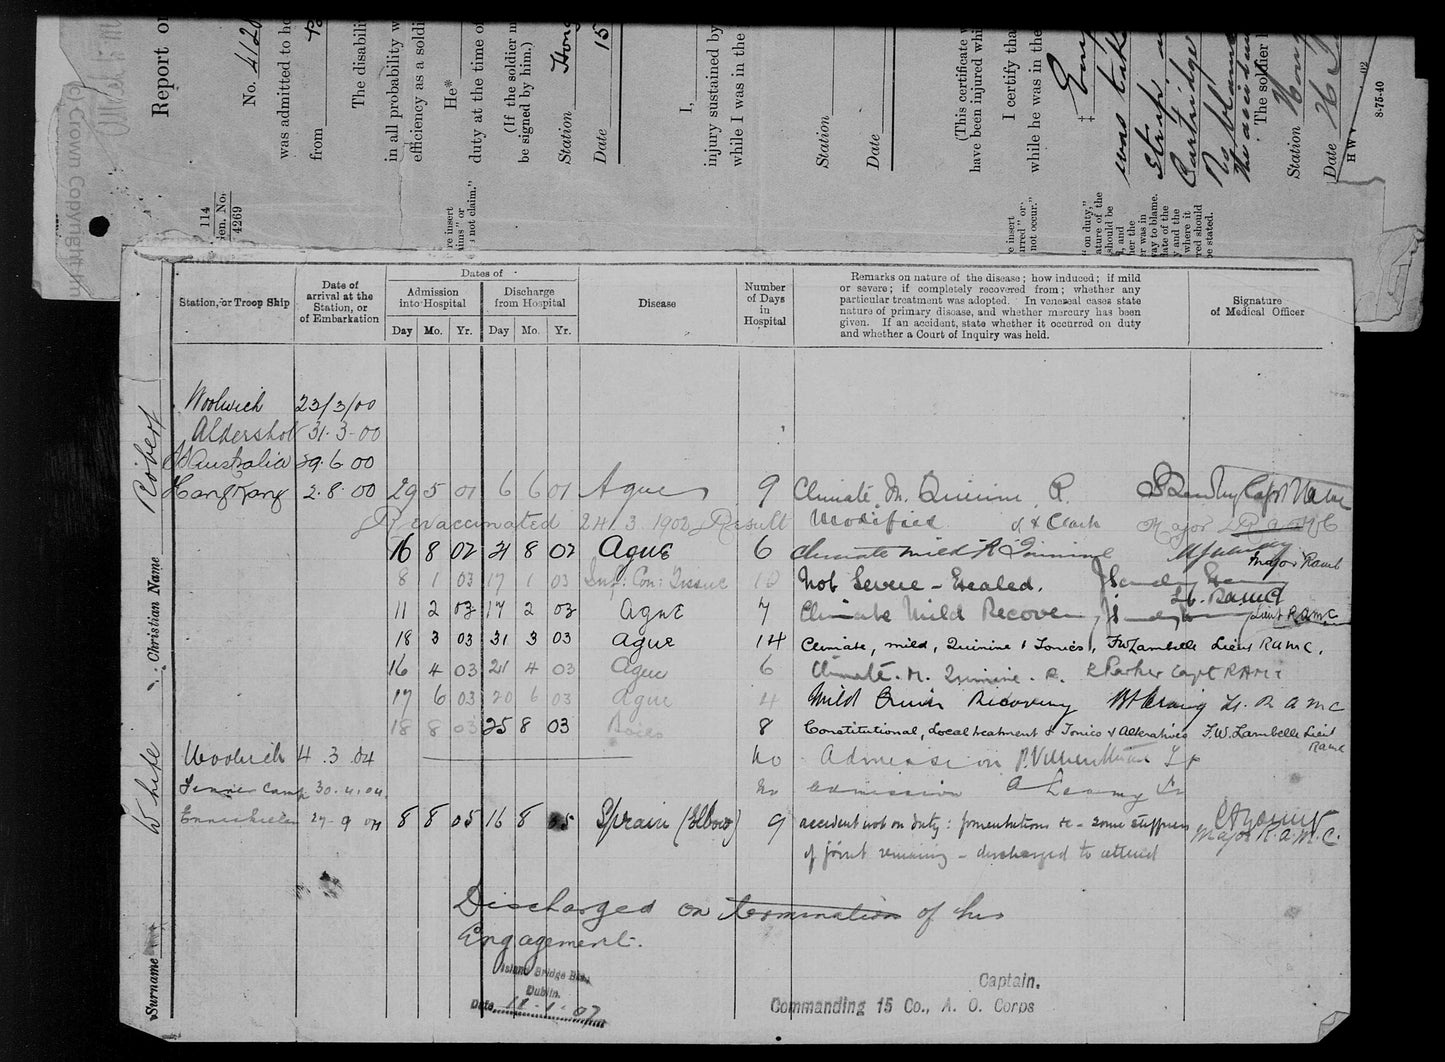 (c) Crown Copyright
Report or
No. 4120
was admitted to ho
The disabili
from
in all probability w
efficiency as a soldi
He*
duty at the time of
(If the soldier
be signed by him.)
Station Hong
Date 15
I,
injury sustained by
while I was in the
Station
Date
(This certificate
have been injured whi
I certify tha
while he was in the
‡
was take
Strip
Cartridge
No blame
The accident
The soldier
Station Hong
Date
H W V
8-75-40
114
Gen. No.
4269
re insert
aims" or
s not claim."
re insert
urred" or
not occur."
" on duty,"
ature of the
should be
, and
her the
er was in
way to blame.
ate of the
y and the
where it
red should
be stated.
Surname White Christian Name Robert
Dates of
Station, or Troop Ship
Date of arrival at the Station, or of Embarkation
Admission into Hospital
Discharge from Hospital
Disease
Number of Days in Hospital
Remarks on nature of the disease; how induced; if mild or severe; if completely recovered from; whether any particular treatment was adopted. In venereal cases state nature of primary disease, and whether mercury has been given. If an accident, state whether it occurred on duty and whether a Court of Inquiry was held.
Signature of Medical Officer
Day Mo. Yr. Day Mo. Yr.
Woolwich 23/3/00
Aldershot 31.3.00
Australia 29.6.00
Hong Kong 2.8.00 29 5 01 6 6 01 Ague 9 Climate M. Quinine R. Capt
Revaccinated 24 3 1902 Result Modified Major
16 8 02 21 8 02 Ague 6 Climate mild R Quinine Major RAMC
8 1 03 17 1 03 Inf: Con: Tissue 10 Not Severe - Healed. Lt. RAMC
11 2 03 17 2 03 Ague 7 Climate Mild Recover Lieut R.A.M.C
18 3 03 31 3 03 Ague 14 Climate, mild, Quinine & Tonics, F.W. Lambelle Lieut RAMC.
16 4 03 21 4 03 Ague 6 Climate. M. Quinine. R. Parker Capt RAMC
17 6 03 20 6 03 Ague 4 Mild Quin Recovery Craig Lt. R A M C
18 8 03 25 8 03 Boils 8 Constitutional, Local treatment & Tonics & Alteratives F.W. Lambelle Lieut RAMC
Woolwich 4.3.04 No Admission
Camp 30.4.04. No admission
Enniskillen 27-9 04 8 8 05 16 8 05 Sprain (Elbow) 9 accident not on duty: fomentations &c - some stiffness Major R.A.M.C.
of joint remaining - discharged to attend
Discharged on termination of his
Engagement.
Island Bridge Bks.
Dublin.
Date 11-1-07
Captain,
Commanding 15 Co., A. O. Corps